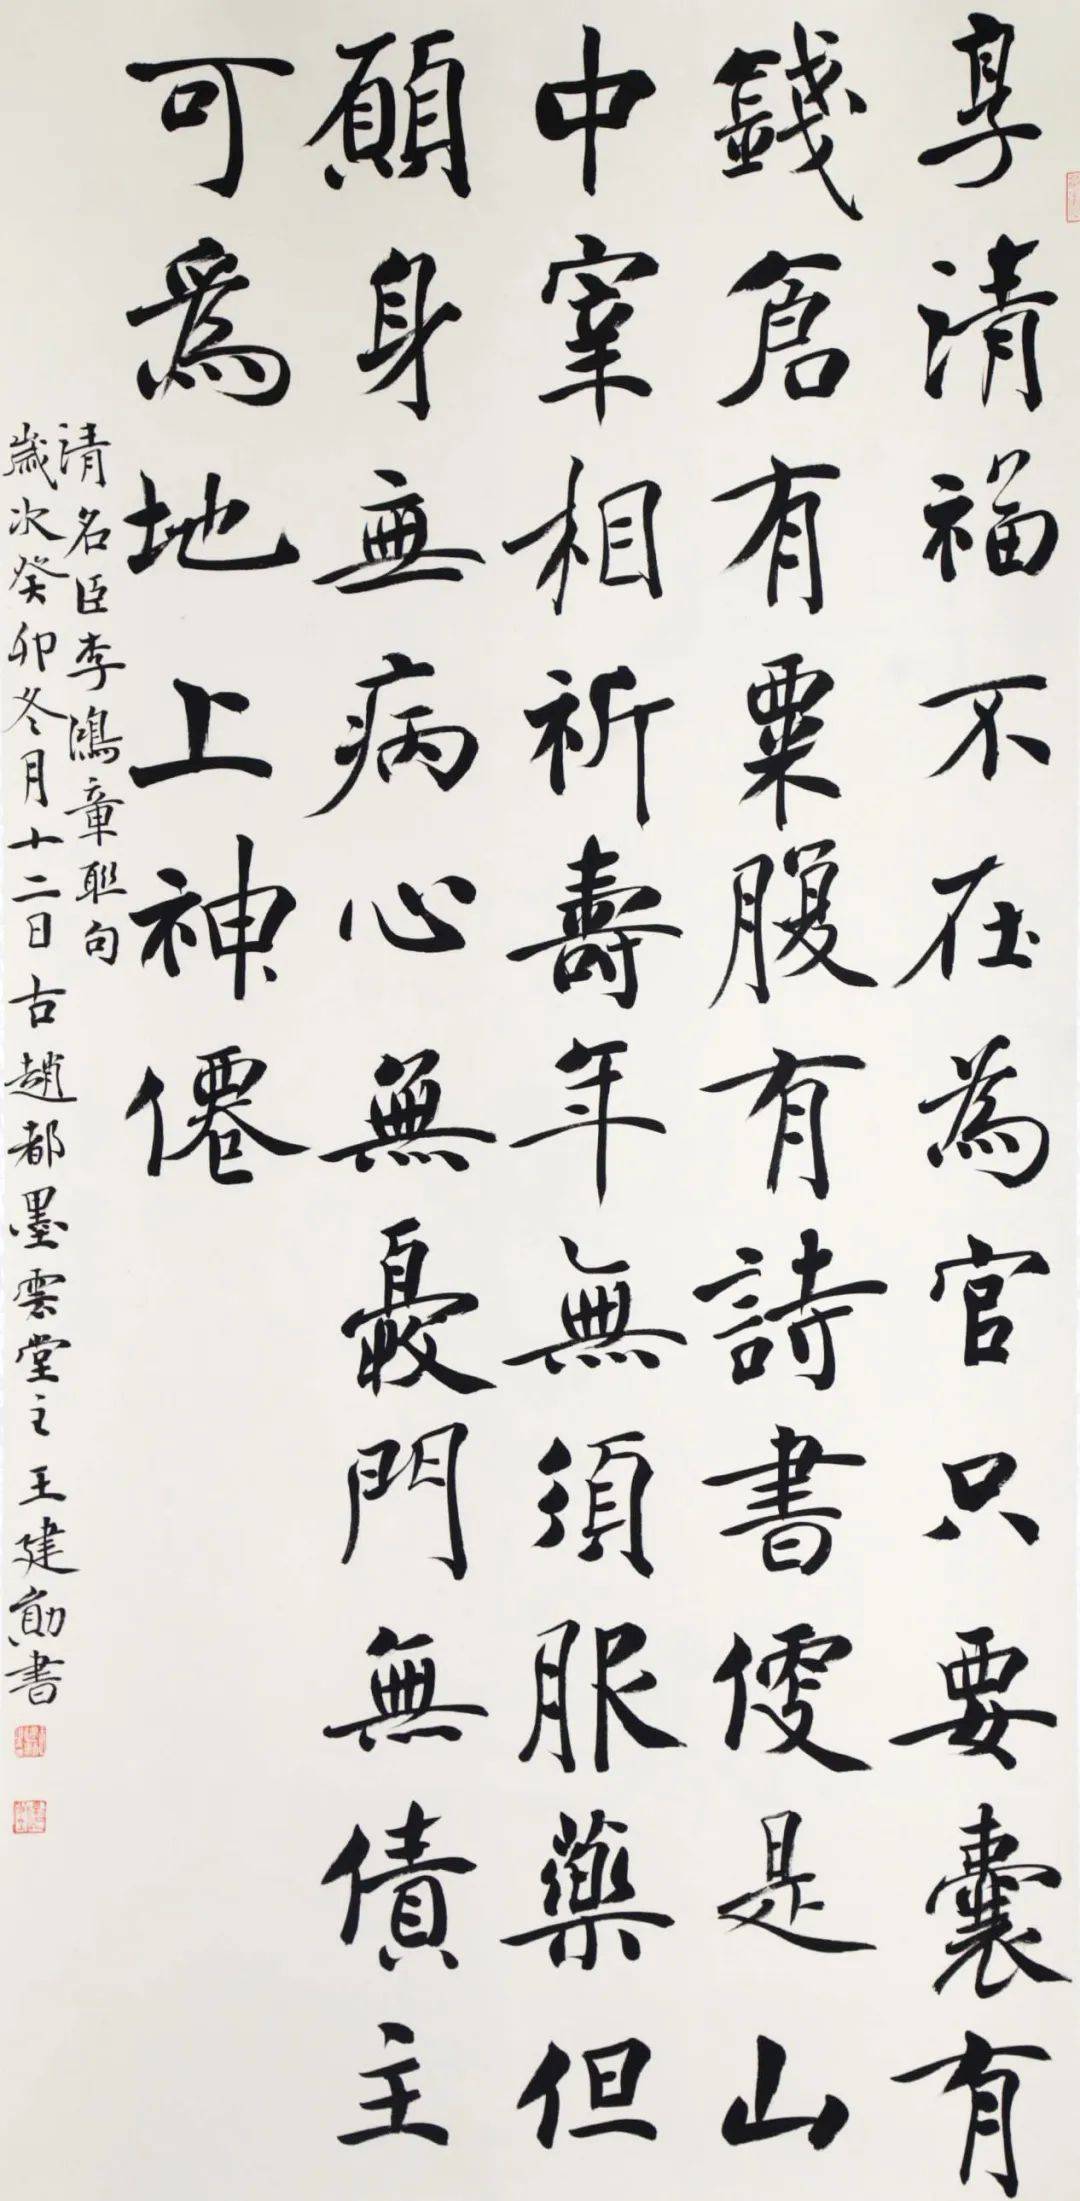 享清福不在為官只要囊有
錢倉有粟腹有詩書便是山
中宰相祈壽年無須服藥但
願身無病心無憂門無債主
可為地上神僊
清名臣李鴻章聯句
歲次癸卯冬月十二日古趙都墨雲堂主王建勛書